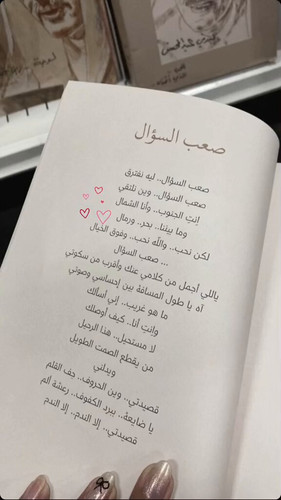 صعب السؤال
صعب السؤال.. ليه نفترق
صعب السؤال.. وين نلتقي
إنتِ الجنوب.. وأنا الشمال
وما بيننا.. بحر.. ورمال
لكن نحب.. والله نحب.. وفوق الخيال
... صعب السؤال
ياللي أجمل من كلامي عنك وأقرب من سكوتي
آه يا طول المسافة بين إحساسي وصوتي
ما هو غريب.. إني أسألك
وإنتِ أنا.. كيف أوصلك
لا مستحيل.. هذا الرحيل
من يقطع الصمت الطويل
ويدلني
قصيدتي.. وين الحروف.. جف القلم
يا ضايعة.. ببرد الكفوف.. رعشة ألم
قصيدتي.. إلا الندم.. إلا الندم